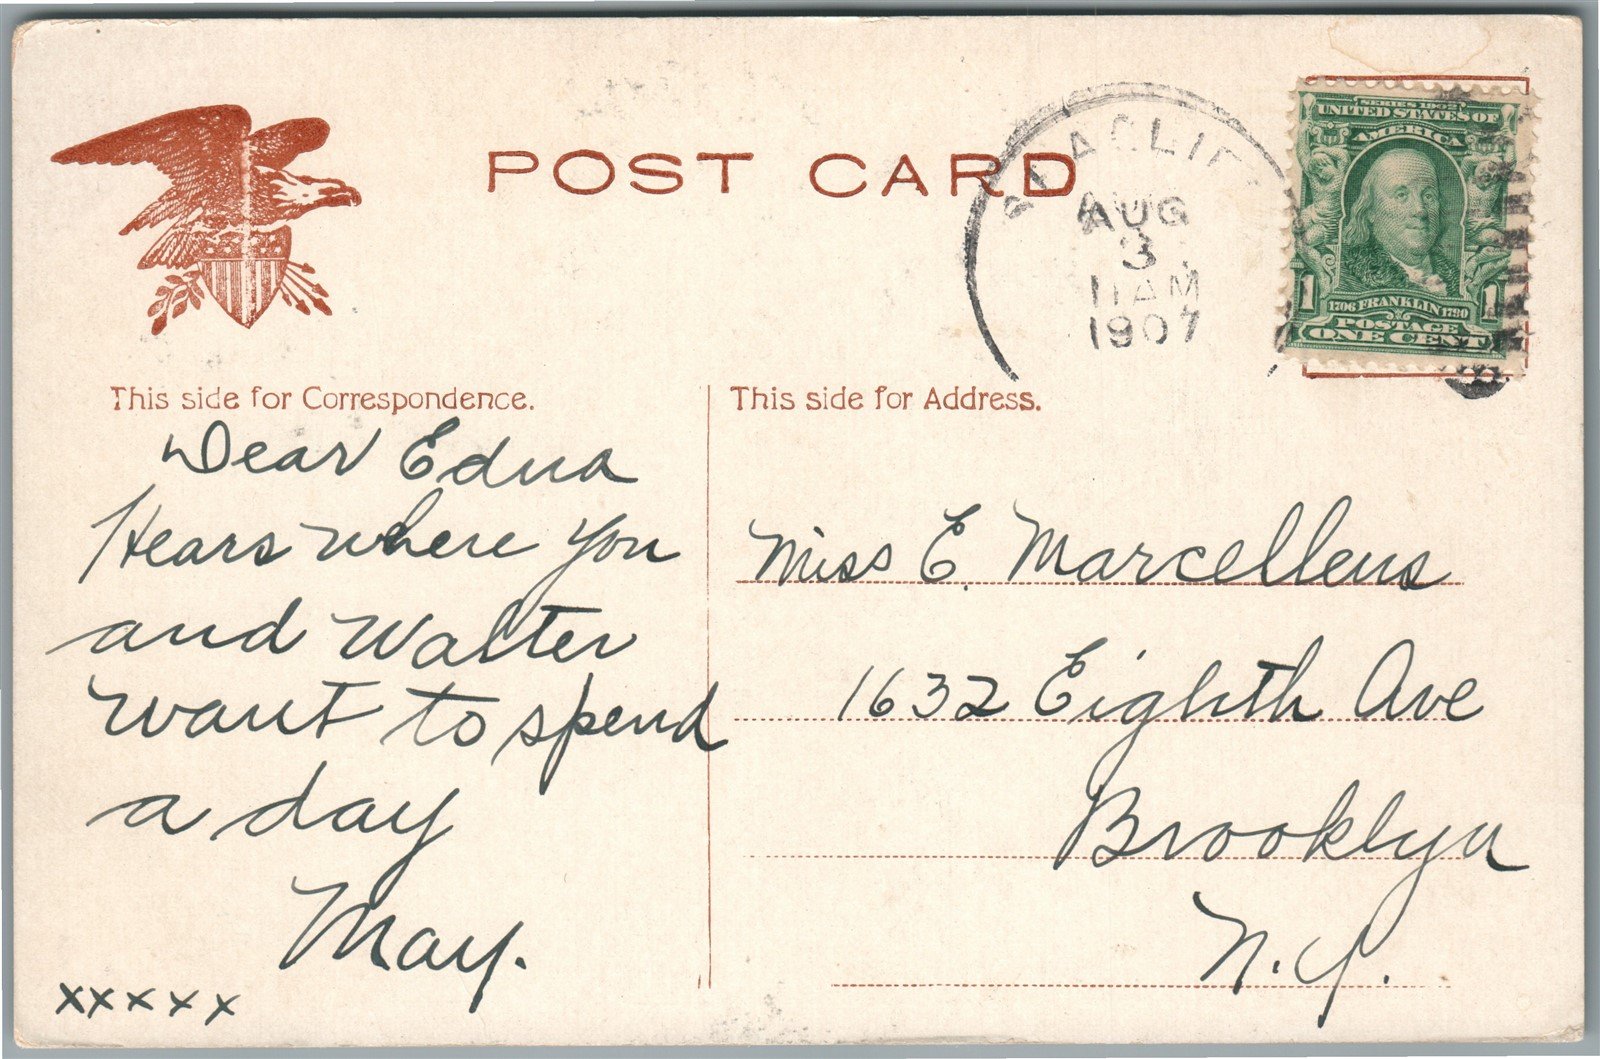 POST CARD
AUG
3
11 AM
1907
SERIES 1902
UNITED STATES OF
AMERICA
1 1
1706 FRANKLIN 1790
POSTAGE
ONE CENT
This side for Correspondence.
Dear Edna
Hears where you
and Walter
want to spend
a day
May.
xxxxx
This side for Address.
Miss E. Marcellus
1632 Eighth Ave
Brooklyn
N.Y.